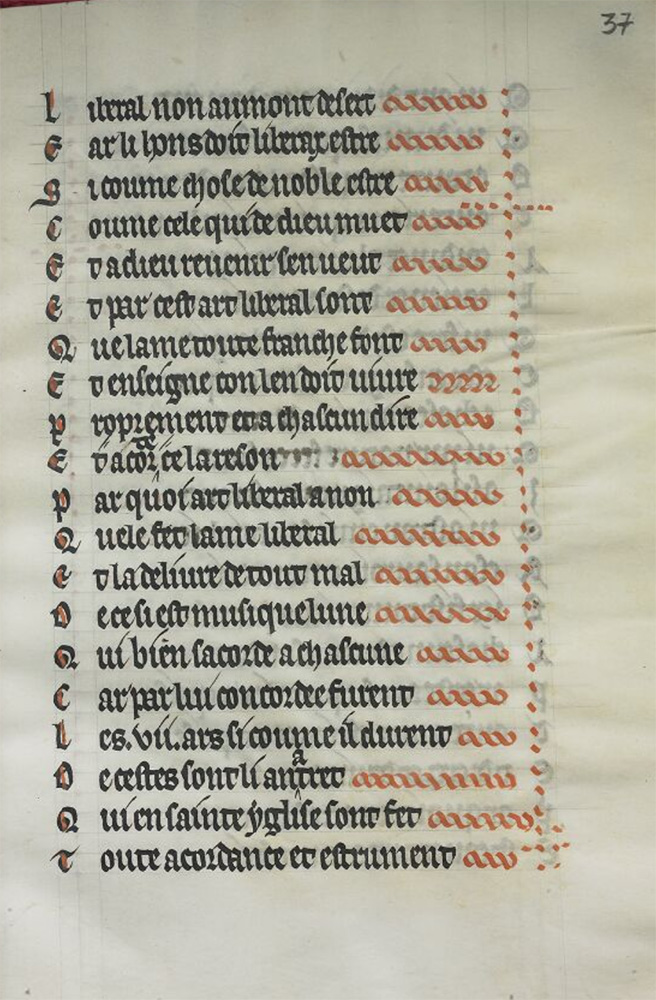 37
Liberal non aumont desert
Car li hons doit liberax estre
Si coume chose de noble estre
Coume cele qui de dieu muet
Et a dieu revenir sen veut
Et par cest art liberal sont
Que lame toute franche font
Et enseigne con len doit vivre
Proprement et a chascun dire
Et acorce la reson
Par quoi art liberal a non
Quele fet lame liberal
Et la delivre de tout mal
De ce si est musique lune
Qui bien sacorde a chascune
Car par lui concordee furent
Les .vii. ars si coume il durent
De cestes sont li autret
Qui en sainte yglise sont fet
Toute acordance et estrument